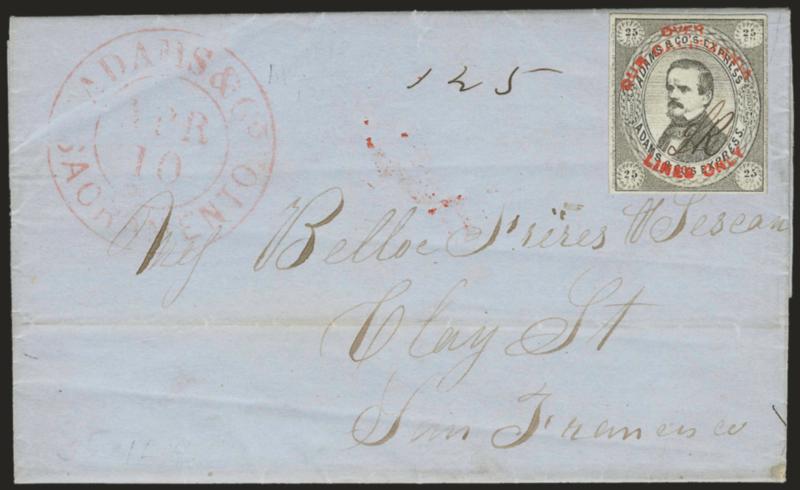 ADAMS & CO
APR
10
SACRAMENTO
125
25 25
OVER
OUR CALIFORNIA
ADAMS & CO'S EXPRESS
ADAMS & CO'S EXPRESS.
LINES ONLY
25 25
Belloc Frères
Clay St
San Francisco